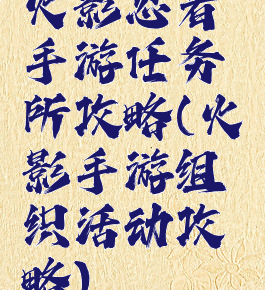 火影忍者
手游任务
所攻略(火
影手游组
织活动攻
略)